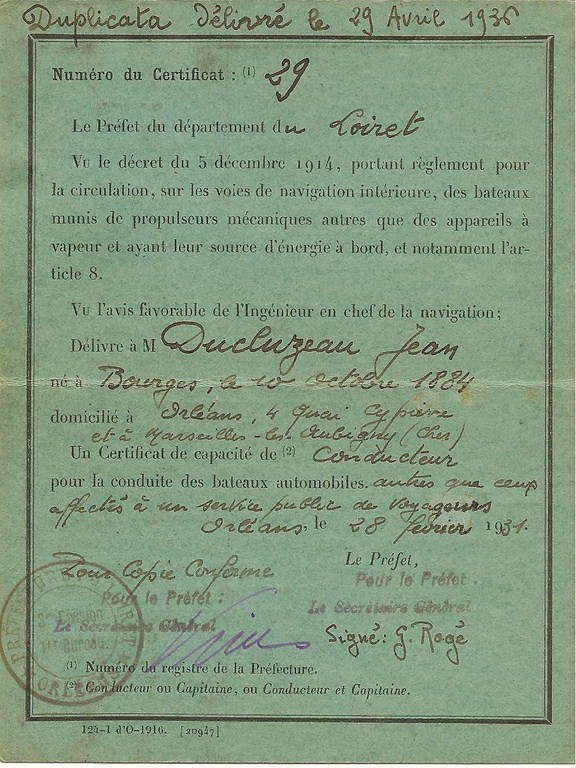 Duplicata Délivré le 29 Avril 1936
Numéro du Certificat : (1) 29
Le Préfet du département du Loiret
Vu le décret du 5 décembre 1914, portant règlement pour
la circulation, sur les voies de navigation intérieure, des bateaux
munis de propulseurs mécaniques autres que des appareils à
vapeur et ayant leur source d'énergie à bord, et notamment l'ar-
ticle 8.
Vu l'avis favorable de l'Ingénieur en chef de la navigation;
Délivre à M Ducluzeau Jean
né à Bourges, le 10 octobre 1884
domicilié à Orléans, 4 Quai Cypierre
et à Marseilles-les-Aubigny (Cher)
Un Certificat de capacité de (2) Conducteur
pour la conduite des bateaux automobiles. autres que ceux
affectés à un service public de voyageurs
Orléans, le 28 février 1931.
Pour Copie Conforme
Pour le Préfet :
Le Secrétaire Général
Le Préfet,
Pour le Préfet :
Le Secrétaire Général
Signé: G. Rogé
ORLÉANS
(1) Numéro du registre de la Préfecture.
(2) Conducteur ou Capitaine, ou Conducteur et Capitaine.
124-1 d'O-1916. [20947]